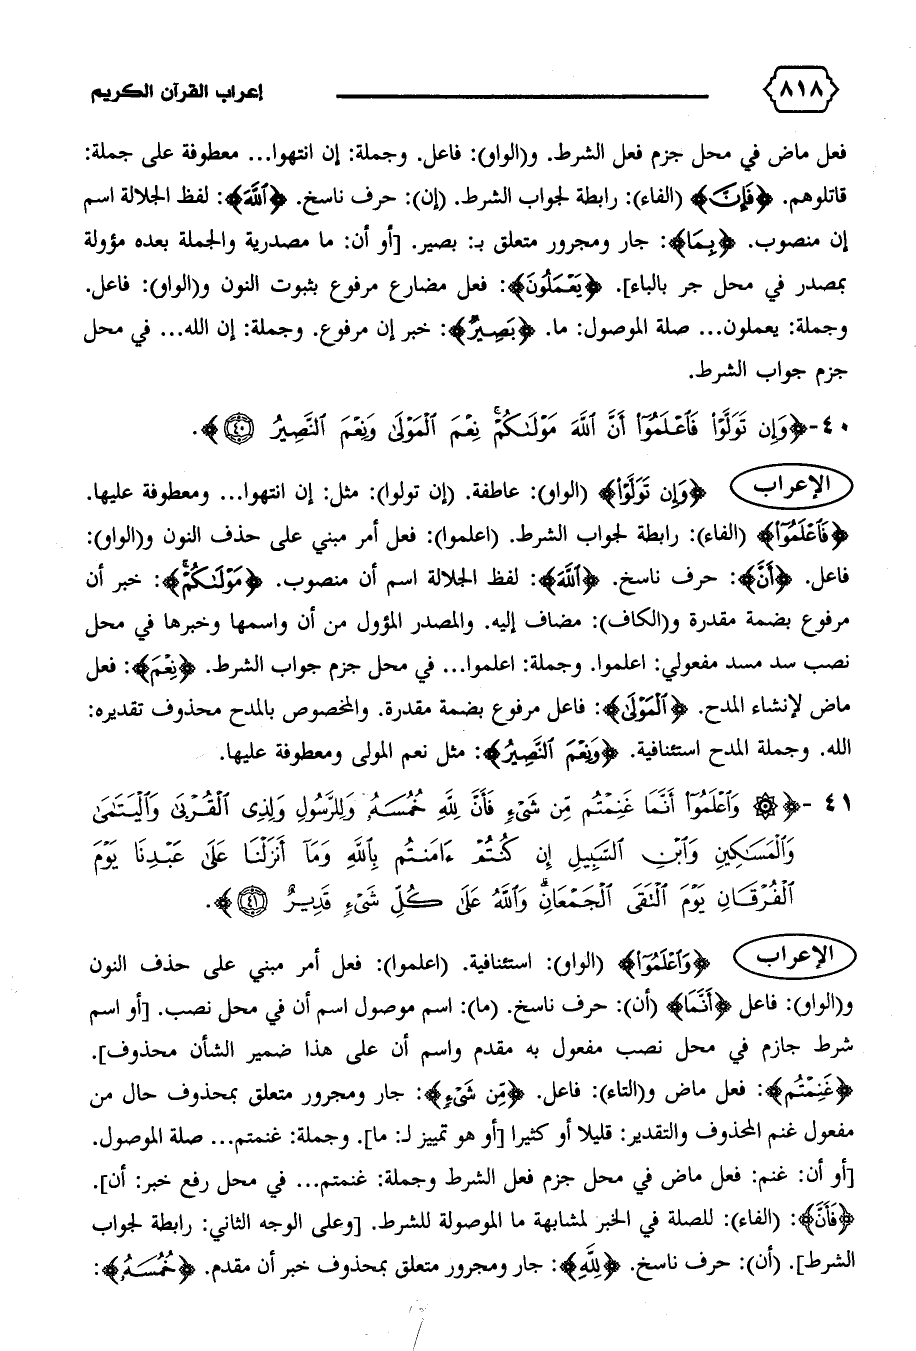 ﴿٨١٨﴾ إعراب القرآن الكريم
فعل ماض في محل جزم فعل الشرط. و(الواو): فاعل. وجملة: إن انتهوا... معطوفة على جملة:
قاتلوهم. ﴿فَإِنَّ﴾ (الفاء): رابطة لجواب الشرط. (إن): حرف ناسخ. ﴿ٱللَّهَ﴾: لفظ الجلالة اسم
إن منصوب. ﴿بِمَا﴾: جار ومجرور متعلق بـ: بصير. [أو أن: ما مصدرية والجملة بعده مؤولة
بمصدر في محل جر بالباء]. ﴿يَعْمَلُونَ﴾: فعل مضارع مرفوع بثبوت النون و(الواو): فاعل.
وجملة: يعملون... صلة الموصول: ما. ﴿بَصِيرٌ﴾: خبر إن مرفوع. وجملة: إن الله... في محل
جزم جواب الشرط.
٤٠-﴿وَإِن تَوَلَّوْا۟ فَٱعْلَمُوٓا۟ أَنَّ ٱللَّهَ مَوْلَىٰكُمْ ۚ نِعْمَ ٱلْمَوْلَىٰ وَنِعْمَ ٱلنَّصِيرُ ﴿٤٠﴾﴾.
الإعراب ﴿وَإِن تَوَلَّوْا۟﴾ (الواو): عاطفة. (إن تولوا): مثل: إن انتهوا... ومعطوفة عليها.
﴿فَٱعْلَمُوٓا۟﴾ (الفاء): رابطة لجواب الشرط. (اعلموا): فعل أمر مبني على حذف النون و(الواو):
فاعل. ﴿أَنَّ﴾: حرف ناسخ. ﴿ٱللَّهَ﴾: لفظ الجلالة اسم أن منصوب. ﴿مَوْلَىٰكُمْ ۚ﴾: خبر أن
مرفوع بضمة مقدرة و(الكاف): مضاف إليه. والمصدر المؤول من أن واسمها وخبرها في محل
نصب سد مسد مفعولي: اعلموا. وجملة: اعلموا... في محل جزم جواب الشرط. ﴿نِعْمَ﴾: فعل
ماض لإنشاء المدح. ﴿ٱلْمَوْلَىٰ﴾: فاعل مرفوع بضمة مقدرة. والمخصوص بالمدح محذوف تقديره:
الله. وجملة المدح استئنافية. ﴿وَنِعْمَ ٱلنَّصِيرُ﴾: مثل نعم المولى ومعطوفة عليها.
٤١ -﴿۞ وَٱعْلَمُوٓا۟ أَنَّمَا غَنِمْتُم مِّن شَىْءٍ فَأَنَّ لِلَّهِ خُمُسَهُۥ وَلِلرَّسُولِ وَلِذِى ٱلْقُرْبَىٰ وَٱلْيَتَٰمَىٰ
وَٱلْمَسَٰكِينِ وَٱبْنِ ٱلسَّبِيلِ إِن كُنتُمْ ءَامَنتُم بِٱللَّهِ وَمَآ أَنزَلْنَا عَلَىٰ عَبْدِنَا يَوْمَ
ٱلْفُرْقَانِ يَوْمَ ٱلْتَقَى ٱلْجَمْعَانِ ۗ وَٱللَّهُ عَلَىٰ كُلِّ شَىْءٍ قَدِيرٌ ﴿٤١﴾﴾.
الإعراب ﴿وَٱعْلَمُوٓا۟﴾ (الواو): استئنافية. (اعلموا): فعل أمر مبني على حذف النون
و(الواو): فاعل ﴿أَنَّمَا﴾ (أن): حرف ناسخ. (ما): اسم موصول اسم أن في محل نصب. [أو اسم
شرط جازم في محل نصب مفعول به مقدم واسم أن على هذا ضمير الشأن محذوف].
﴿غَنِمْتُم﴾: فعل ماض و(التاء): فاعل. ﴿مِّن شَىْءٍ﴾: جار ومجرور متعلق بمحذوف حال من
مفعول غنم المحذوف والتقدير: قليلا أو كثيرا [أو هو تمييز لـ: ما]. وجملة: غنمتم... صلة الموصول.
[أو أن: غنم: فعل ماض في محل جزم فعل الشرط وجملة: غنمتم... في محل رفع خبر: أن].
﴿فَأَنَّ﴾: (الفاء): للصلة في الخبر لمشابهة ما الموصولة للشرط. [وعلى الوجه الثاني: رابطة لجواب
الشرط]. (أن): حرف ناسخ. ﴿لِلَّهِ﴾: جار ومجرور متعلق بمحذوف خبر أن مقدم. ﴿خُمُسَهُۥ﴾: